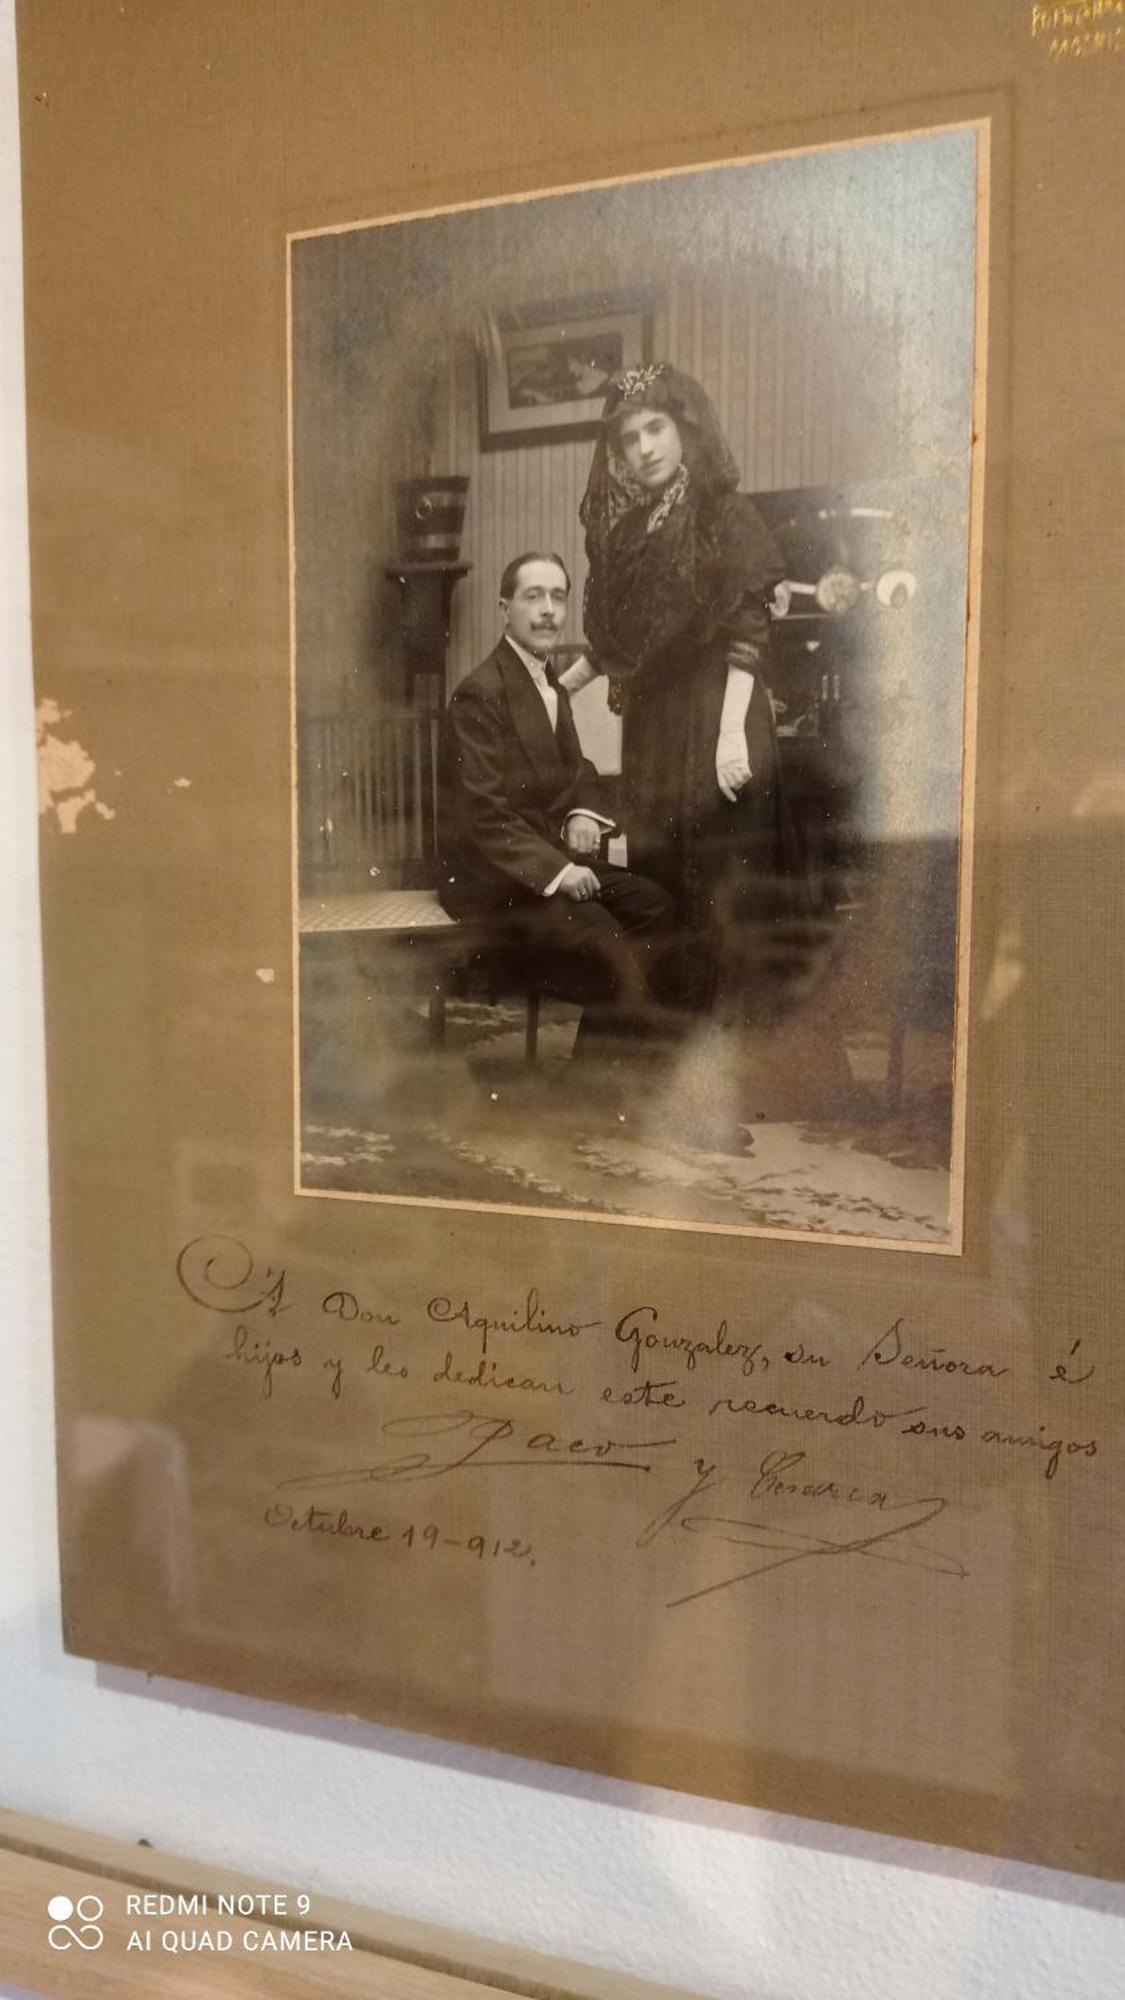 MADRID
A Don Aquilino Gonzalez, su Señora é
hijos y les dedican este recuerdo sus amigos
Paco y Cesarea
Octubre 19-912.
REDMI NOTE 9
AI QUAD CAMERA